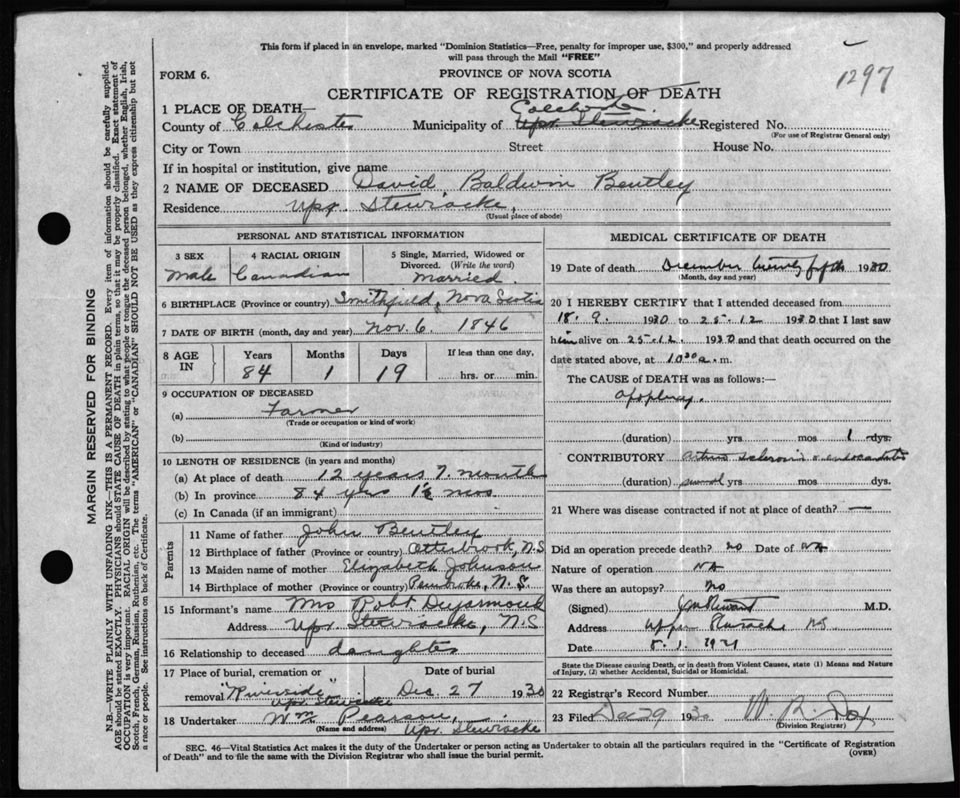 This form if placed in an envelope, marked "Dominion Statistics—Free, penalty for improper use, $300," and properly addressed
will pass through the Mail "FREE"
1297
FORM 6.
PROVINCE OF NOVA SCOTIA
CERTIFICATE OF REGISTRATION OF DEATH
1 PLACE OF DEATH—
Colchester
County of Colchester Municipality of Upr. Stewiacke Registered No.
(For use of Registrar General only)
City or Town Street House No.
If in hospital or institution, give name
2 NAME OF DECEASED David Baldwin Bentley
Residence Upr. Stewiacke,
(Usual place of abode)
PERSONAL AND STATISTICAL INFORMATION
3 SEX
Male
4 RACIAL ORIGIN
Canadian
5 Single, Married, Widowed or
Divorced. (Write the word)
Married.
6 BIRTHPLACE (Province or country) Smithfield, Nova Scotia
7 DATE OF BIRTH (month, day and year) Nov. 6. 1846
8 AGE IN
Years Months Days If less than one day,
84 1 19 hrs. or min.
9 OCCUPATION OF DECEASED
(a) Farmer
(Trade or occupation or kind of work)
(b)
(Kind of industry)
10 LENGTH OF RESIDENCE (in years and months)
(a) At place of death 12 years 7. months
(b) In province 84 yrs 1½ mos
(c) In Canada (if an immigrant)
Parents
11 Name of father John Bentley
12 Birthplace of father (Province or country) Otterbrook, N.S
13 Maiden name of mother Elizabeth Johnson
14 Birthplace of mother (Province or country) Pembroke, N.S.
15 Informant's name Mrs Robt
Address Upr. Stewiacke, N.S
16 Relationship to deceased daughter
17 Place of burial, cremation or Date of burial
removal "Riverside" Dec. 27 1930
Upr. Stewiacke
18 Undertaker Wm Pearson,
(Name and address) Upr. Stewiacke
MEDICAL CERTIFICATE OF DEATH
19 Date of death December twenty fifth 1930
(Month, day and year)
20 I HEREBY CERTIFY that I attended deceased from
18. 9. 1930 to 25-12 1930 that I last saw
him alive on 25-12. 1930 and that death occurred on the
date stated above, at 10 30 a. m.
The CAUSE OF DEATH was as follows:—
apoplexy.
(duration) yrs mos 1 dys.
CONTRIBUTORY arterio sclerosis & endocarditis
(duration) several yrs mos dys.
21 Where was disease contracted if not at place of death? —
Did an operation precede death? no Date of NA
Nature of operation NA
Was there an autopsy? no
(Signed) M.D.
Address Upper NS
Date 8. 1. 1931
State the Disease causing Death, or in death from Violent Causes, state (1) Means and Nature
of Injury, (2) whether Accidental, Suicidal or Homicidal.
22 Registrar's Record Number
23 Filed Dec 29 1930 W. R.
(Division Registrar)
SEC. 46—Vital Statistics Act makes it the duty of the Undertaker or person acting as Undertaker to obtain all the particulars required in the "Certificate of Registration
of Death" and to file the same with the Division Registrar who shall issue the burial permit. (OVER)
MARGIN RESERVED FOR BINDING
N.B.—WRITE PLAINLY WITH UNFADING INK—THIS IS A PERMANENT RECORD. Every item of information should be carefully supplied.
AGE should be stated EXACTLY. PHYSICIANS should STATE CAUSE OF DEATH in plain terms, so that it may be properly classified. Exact statement of
OCCUPATION is very important. RACIAL ORIGIN will be described by stating to what people or tongue the deceased person belonged, whether English, Irish,
Scotch, French, German, Russian, Ruthenian, etc. The terms "AMERICAN" or "CANADIAN" SHOULD NOT BE USED as they express citizenship but not
a race or people. See instructions on back of Certificate.